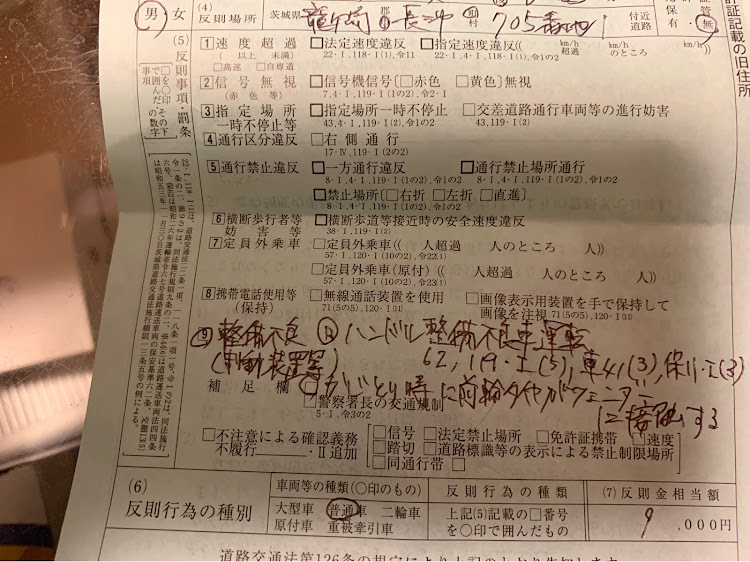 男 女
(4)
反則場所 茨城県 龍ケ崎 郡 市 長沖 町 村 705番地1 付近 道路
保有・無
許証記載の旧住所
(5)反則事項・罰条
□を〇印、その下で囲んだ の数字 事項
1 速度超過 □法定速度違反 □指定速度違反(( km/h超過 km/hのところ km/h))
(以上 未満) 22・I,118・I(1),令11 22・I,118・I(1),令1の2
□高速 □自専道
2 信号無視 □信号機信号〔□赤色 □黄色〕無視
(赤色等) 7,4・I,119・I(1の2),令1の2
3 指定場所 □指定場所一時不停止 □交差道路通行車両等の進行妨害
一時不停止等 43,4・I,119・I(2),令1の2 43,119・I(2)
4 通行区分違反 □右側通行
17・IV,119・I(2の2)
5 通行禁止違反 □一方通行違反 □通行禁止場所通行
8・I,4・I,119・I(1の2),令1の2 8・I,4・I,119・I(1の2),令1の2
□禁止場所〔□右折 □左折 □直進〕
8・I,4・I,119・I(1の2),令1の2
6 横断歩行者等 □横断歩道等接近時の安全速度違反
妨害等 38・I,119・I(2)
7 定員外乗車 □定員外乗車(( 人超過 人のところ 人))
57・I,120・I(10の2),令22(1)
□定員外乗車(原付)(( 人超過 人のところ 人))
57・I,120・I(10の2),令23(1)
8 携帯電話使用等 □無線通話装置を使用 □画像表示用装置を手で保持して
(保持) 71(5の5),120・I(11) 画像を注視 71(5の5),120・I(11)
9 整備不良 ハンドル整備不良車運転
(制動装置等) 62,119・I(5),車41(3),保11・I(3)
補足欄 時に前輪タイヤがフェンダーに接触する
□警察署長の交通規制
5・I,令3の2
□不注意による確認義務 □信号 □法定禁止場所 □免許証携帯 □速度
不履行……II追加 □踏切 □道路標識等の表示による禁止制限場所
□同通行帯 □
(6) 反則行為の種別
車両等の種類(〇印のもの) 反則行為の種類 (7)反則金相当額
大型車 普通車 二輪車 上記(5)記載の□番号 9,000円
原付車 重被牽引車 を〇印で囲んだもの
道路交通法第126条の規定により上記のとおり告知します